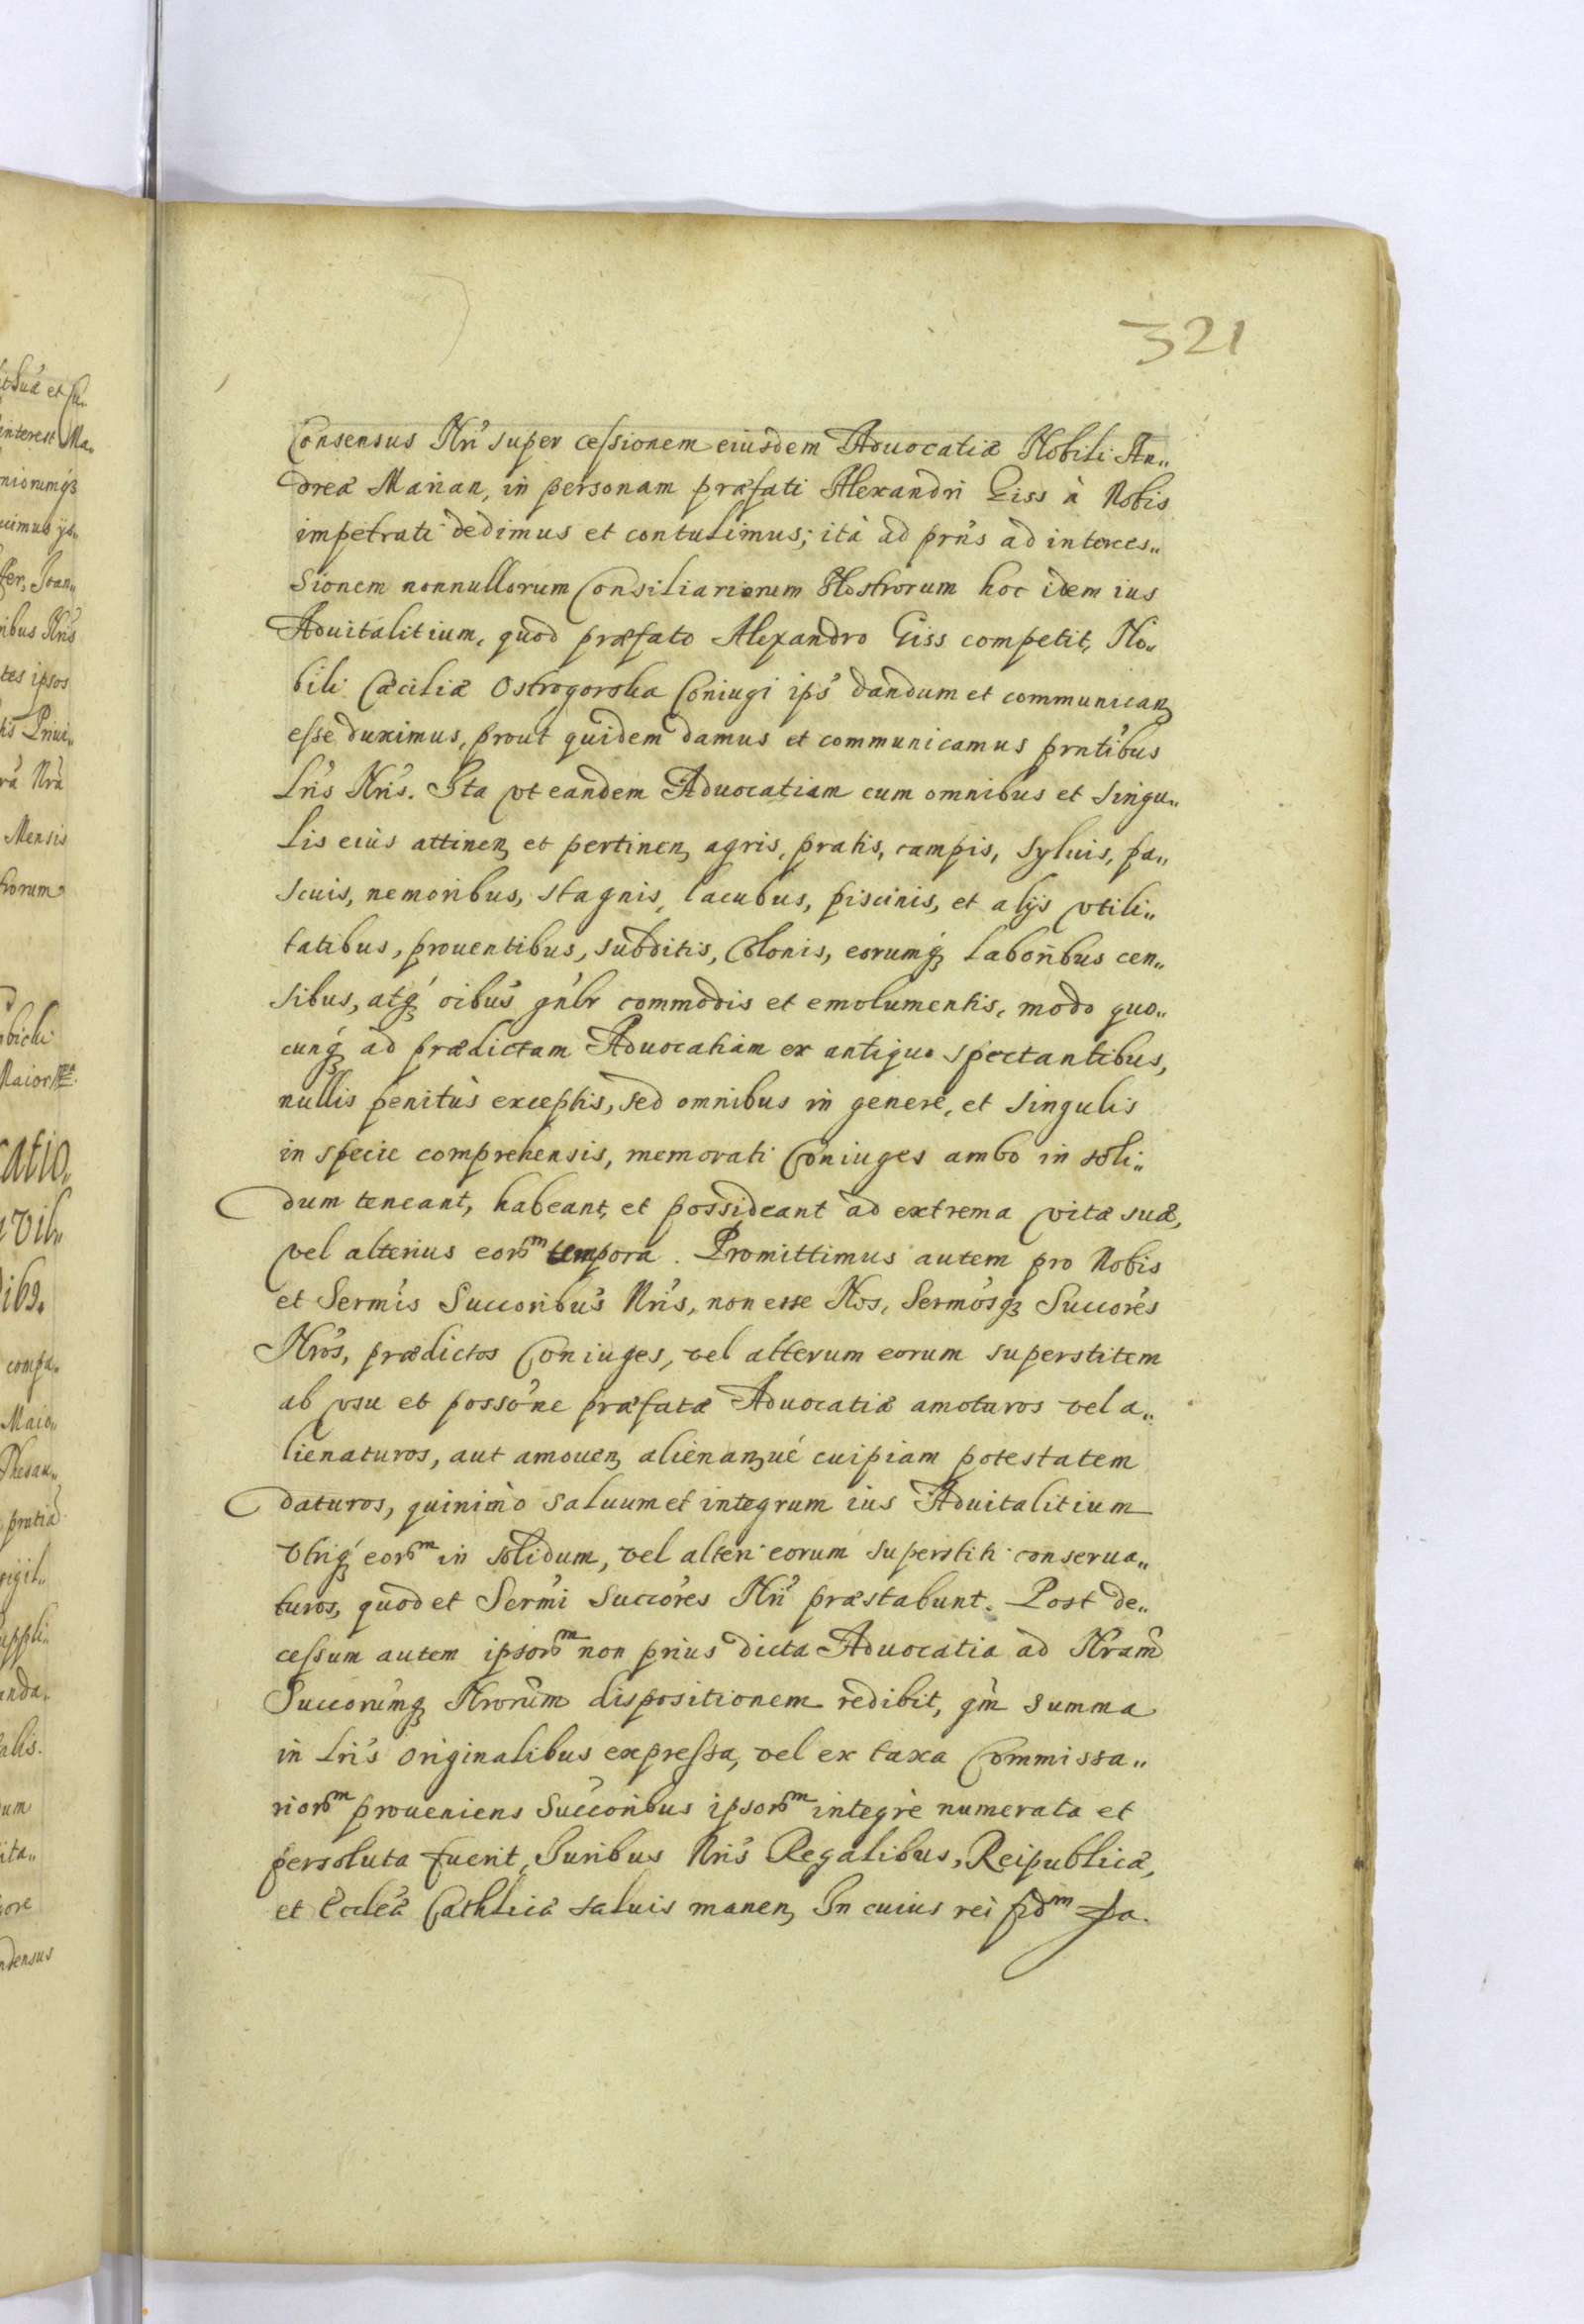 321
Consensus Nri super cessionem eiusdem Aduocatiæ Nobili An„
dreæ Marian, in personam præfati Alexandri Giss à Nobis
impetrati dedimus et contulimus; ità ad prns ad interces„
sionem nonnullorum Consiliariorum Nostrorum hoc idem ius
Aduitalitium, quod præfato Alexandro Giss competit, No„
bili Cæciliæ Ostrogorska Coniugi ips dandum et communican
esse duximus, prout quidem damus et communicamus prntibus
Lris Nris. Ita vt eandem Aduocatiam cum omnibus et singu„
lis eius attinen et pertinen, agris, pratis, campis, syluis, pa„
scuis, nemoribus, stagnis, lacubus, piscinis, et alijs vtili„
tatibus, prouentibus, subditis, Colonis, eorumq3 laboribus cen„
sibus, atq3 oibus gnlr commodis et emolumentis, modo quo„
cunq3 ad prædictam Aduocatiam ex antiquo spectantibus,
nullis penitùs exceptis, sed omnibus in genere, et singulis
in specie comprehensis, memorati Coniuges ambo in soli„
dum teneant, habeant, et possideant ad extrema vitæ suæ,
vel alterius eorom tempora. Promittimus autem pro Nobis
et Sermis Succoribus Nris, non esse Nos, Sermosq3 Succores
Nros, prædictos Coniuges, vel alterum eorum superstitem
ab vsu et possone præfatæ Aduocatiæ amoturos vel a„
lienaturos, aut amouen, alienanué cuipiam potestatem
daturos, quinimò saluum et integrum ius Aduitalitium
vtriq3 eorom in solidum, vel alteri eorum superstiti conserua„
turos, quod et Sermi Succores Nri præstabunt. Post de„
cessum autem ipsorom non prius dicta Aduocatia ad Nram
Succorumq3 Nrorum dispositionem redibit, qm summa
in Lris originalibus expressa, vel ex taxa Commissa„
riorom proueniens Succoribus ipsorom integrè numerata et
persoluta fuerit, Iuribus Nris Regalibus, Reipublicæ,
et Eccleæ Cathlicæ saluis manen, In cuius rei fidm